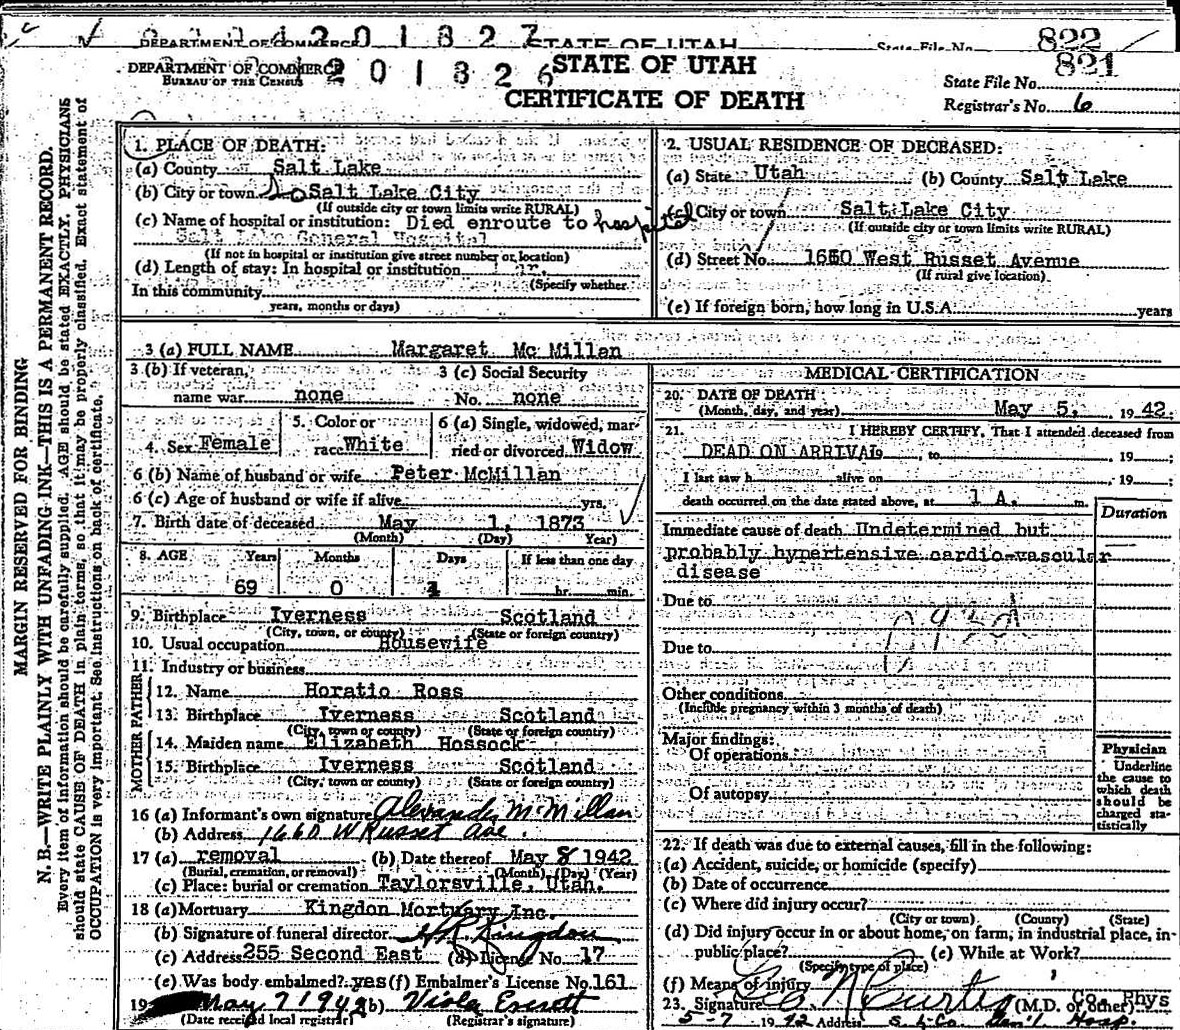 DEPARTMENT OF COMMERCE 201827 STATE OF UTAH State File No. 822
DEPARTMENT OF COMMERCE 201826 STATE OF UTAH 821
BUREAU OF THE CENSUS
State File No.
CERTIFICATE OF DEATH
Registrar's No. 6
MARGIN RESERVED FOR BINDING
N. B.—WRITE PLAINLY WITH UNFADING INK—THIS IS A PERMANENT RECORD.
Every item of information should be carefully supplied. AGE should be stated EXACTLY. PHYSICIANS
should state CAUSE OF DEATH in plain terms, so that it may be properly classified. Exact statement of
OCCUPATION is very important. See instructions on back of certificate.
1. PLACE OF DEATH:
(a) County Salt Lake
(b) City or town Salt Lake City
(If outside city or town limits write RURAL)
(c) Name of hospital or institution: Died enroute to hospital
Salt Lake General Hospital
(If not in hospital or institution give street number or location)
(d) Length of stay: In hospital or institution
(Specify whether
In this community
years, months or days)
2. USUAL RESIDENCE OF DECEASED:
(a) State Utah (b) County Salt Lake
(c) City or town Salt Lake City
(If outside city or town limits write RURAL)
(d) Street No. 1660 West Russet Avenue
(If rural give location)
(e) If foreign born, how long in U.S.A. years
3 (a) FULL NAME Margaret Mc Millan
3 (b) If veteran, 3 (c) Social Security
name war none No. none
4. Sex Female 5. Color or race White 6 (a) Single, widowed, married or divorced Widow
6 (b) Name of husband or wife Peter McMillan
6 (c) Age of husband or wife if alive yrs.
7. Birth date of deceased May 1, 1873
(Month) (Day) Year)
8. AGE Years Months Days If less than one day
69 0 4 hr. min.
9. Birthplace Iverness Scotland
(City, town, or county) (State or foreign country)
10. Usual occupation Housewife
11. Industry or business
FATHER
12. Name Horatio Ross
13. Birthplace Iverness Scotland
(City, town or county) (State or foreign country)
MOTHER
14. Maiden name Elizabeth Hossock
15. Birthplace Iverness Scotland
(City, town or county) (State or foreign country)
16 (a) Informant's own signature Alexander McMillan
(b) Address 1660 W Russet Ave.
17 (a) removal (b) Date thereof May 8 1942
(Burial, cremation, or removal) (Month) (Day) (Year)
(c) Place: burial or cremation Taylorsville, Utah.
18 (a) Mortuary Kingdon Mortuary Inc.
(b) Signature of funeral director
(c) Address 255 Second East (d) License No. 17
(e) Was body embalmed? yes (f) Embalmer's License No. 161
19 May 7 1942 (b) Viola Everett
(Date received local registrar) (Registrar's signature)
MEDICAL CERTIFICATION
20. DATE OF DEATH
(Month, day, and year) May 5, 1942
21. I HEREBY CERTIFY, That I attended deceased from
DEAD ON ARRIVAL 19 , to , 19 ;
I last saw h alive on , 19 ;
death occurred on the date stated above, at 1 A. m.
Duration
Immediate cause of death Undetermined but
probably hypertensive cardio-vascular
disease
Due to
Due to
Other conditions
(Include pregnancy within 3 months of death)
Major findings:
Of operations
Of autopsy
Physician
Underline
the cause to
which death
should be
charged sta-
tistically
22. If death was due to external causes, fill in the following:
(a) Accident, suicide, or homicide (specify)
(b) Date of occurrence
(c) Where did injury occur?
(City or town) (County) (State)
(d) Did injury occur in or about home, on farm, in industrial place, in
public place? (e) While at Work?
(Specify type of place)
(f) Means of injury
23. Signature Curtis (M.D. or other) Co. Phys
5-7 1942 Address S. L. Co. Gen'l Hosp.